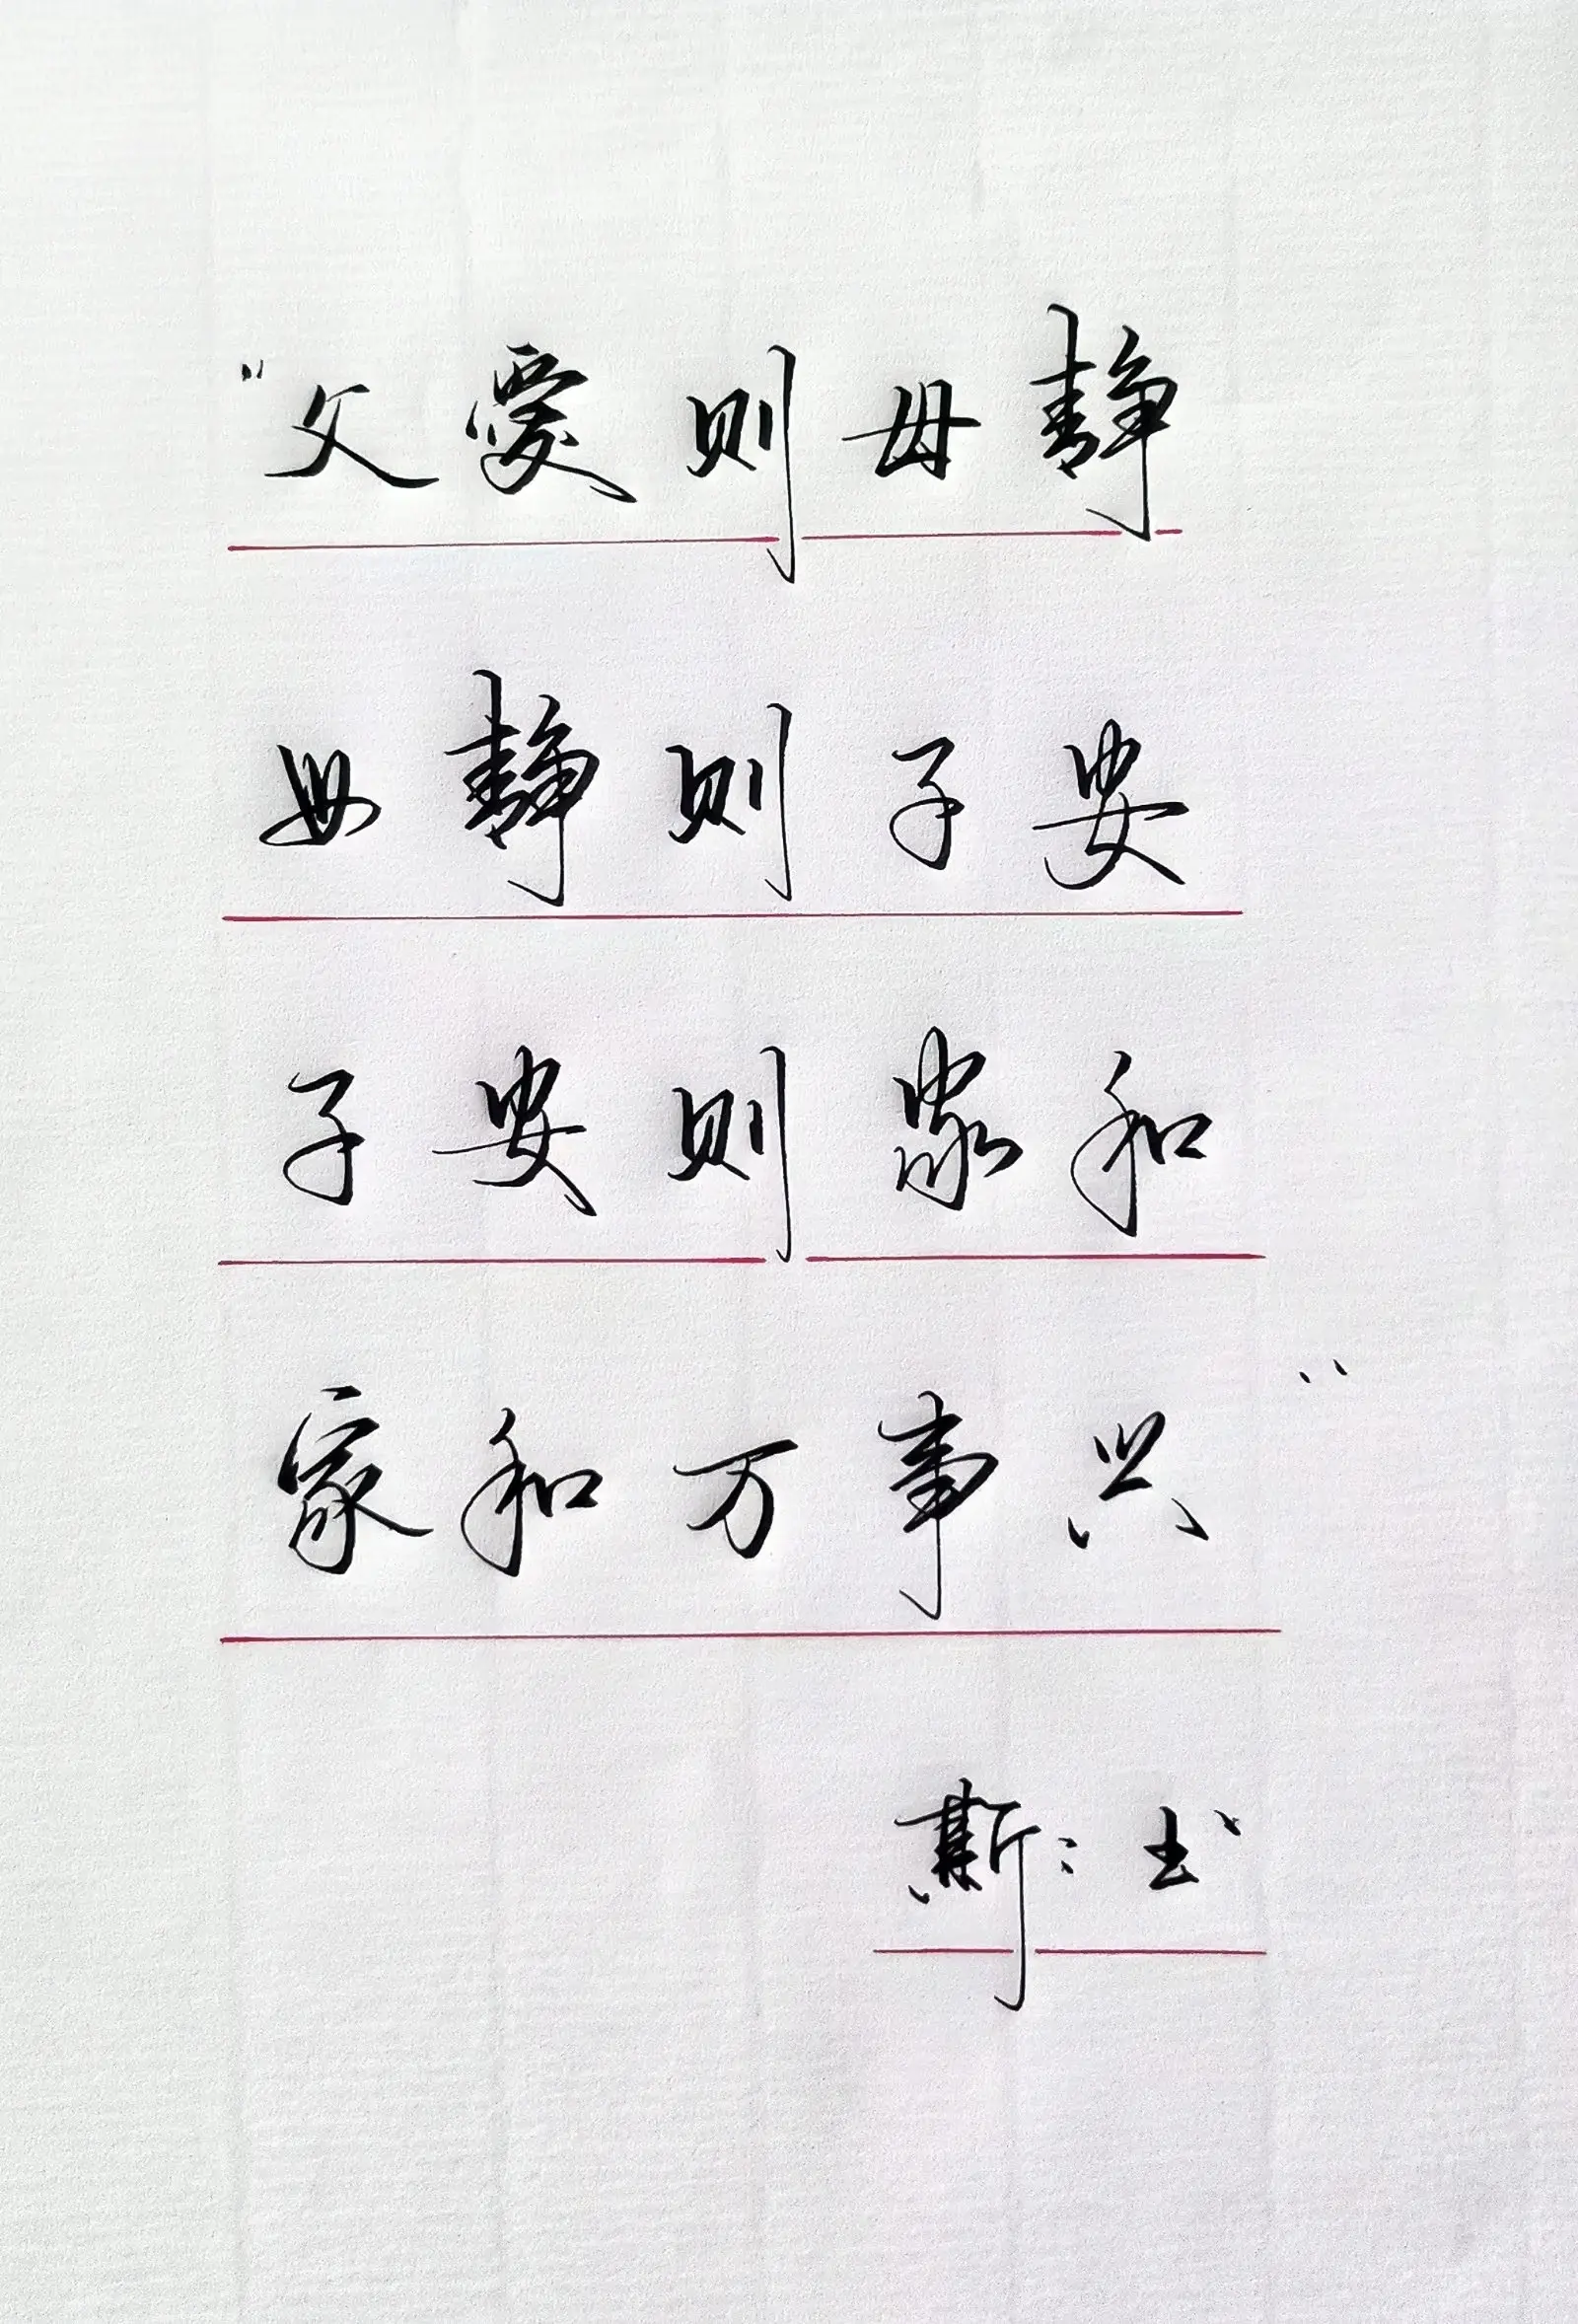 “父爱则母静
母静则子安
子安则家和
家和万事兴”
斯斯书